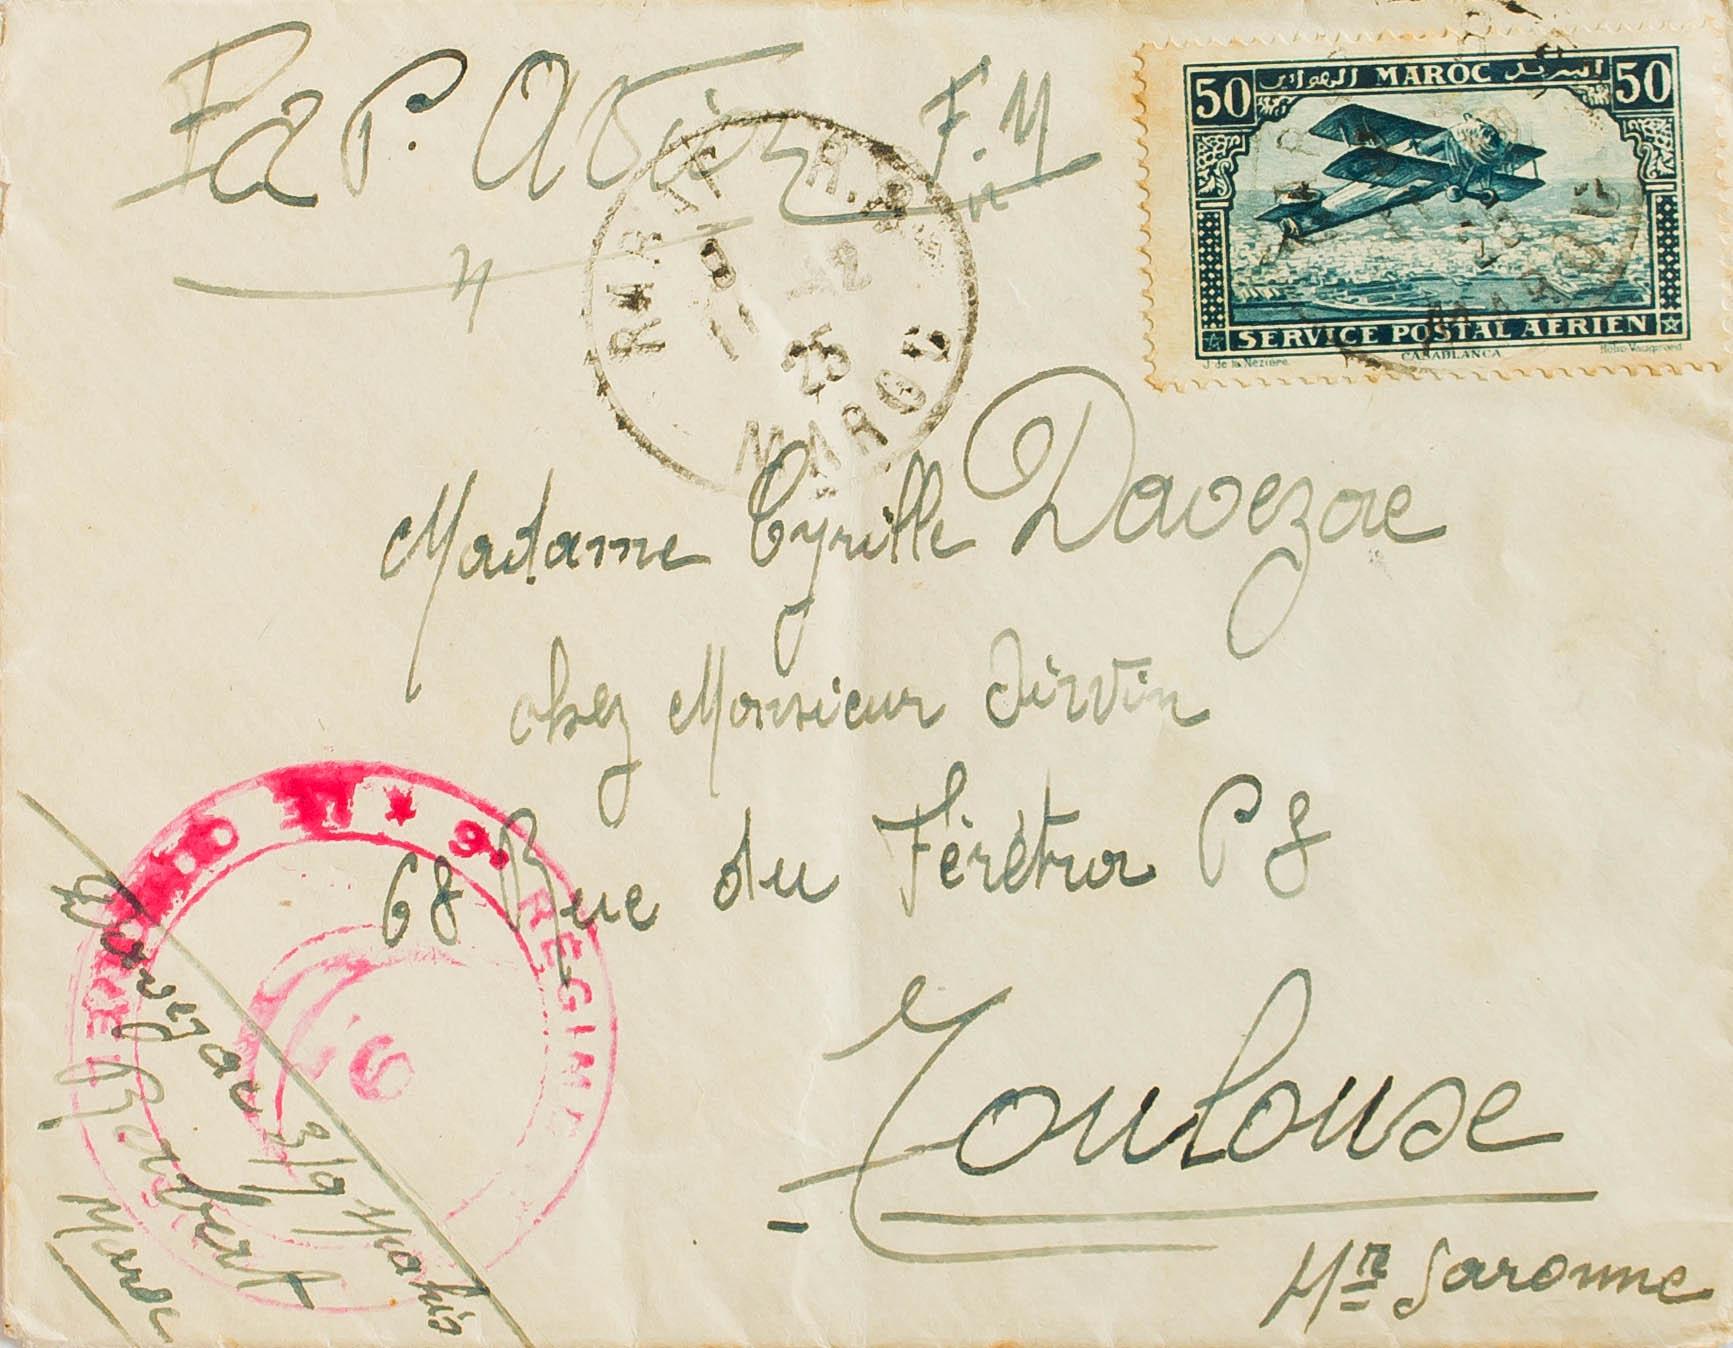 Par Avion F.M
50 MAROC البريد الهوائي 50
SERVICE POSTAL AERIEN
J. de la Nézière CASABLANCA Hélio Vaugirard
RABAT R.P.
25
MAROC
Madame Cyrille Davezac
chez Monsieur
68 Rue du Férétra P 8
Toulouse
Hte Garonne
* 9e REGIME
Davezac 3/9
Maroc